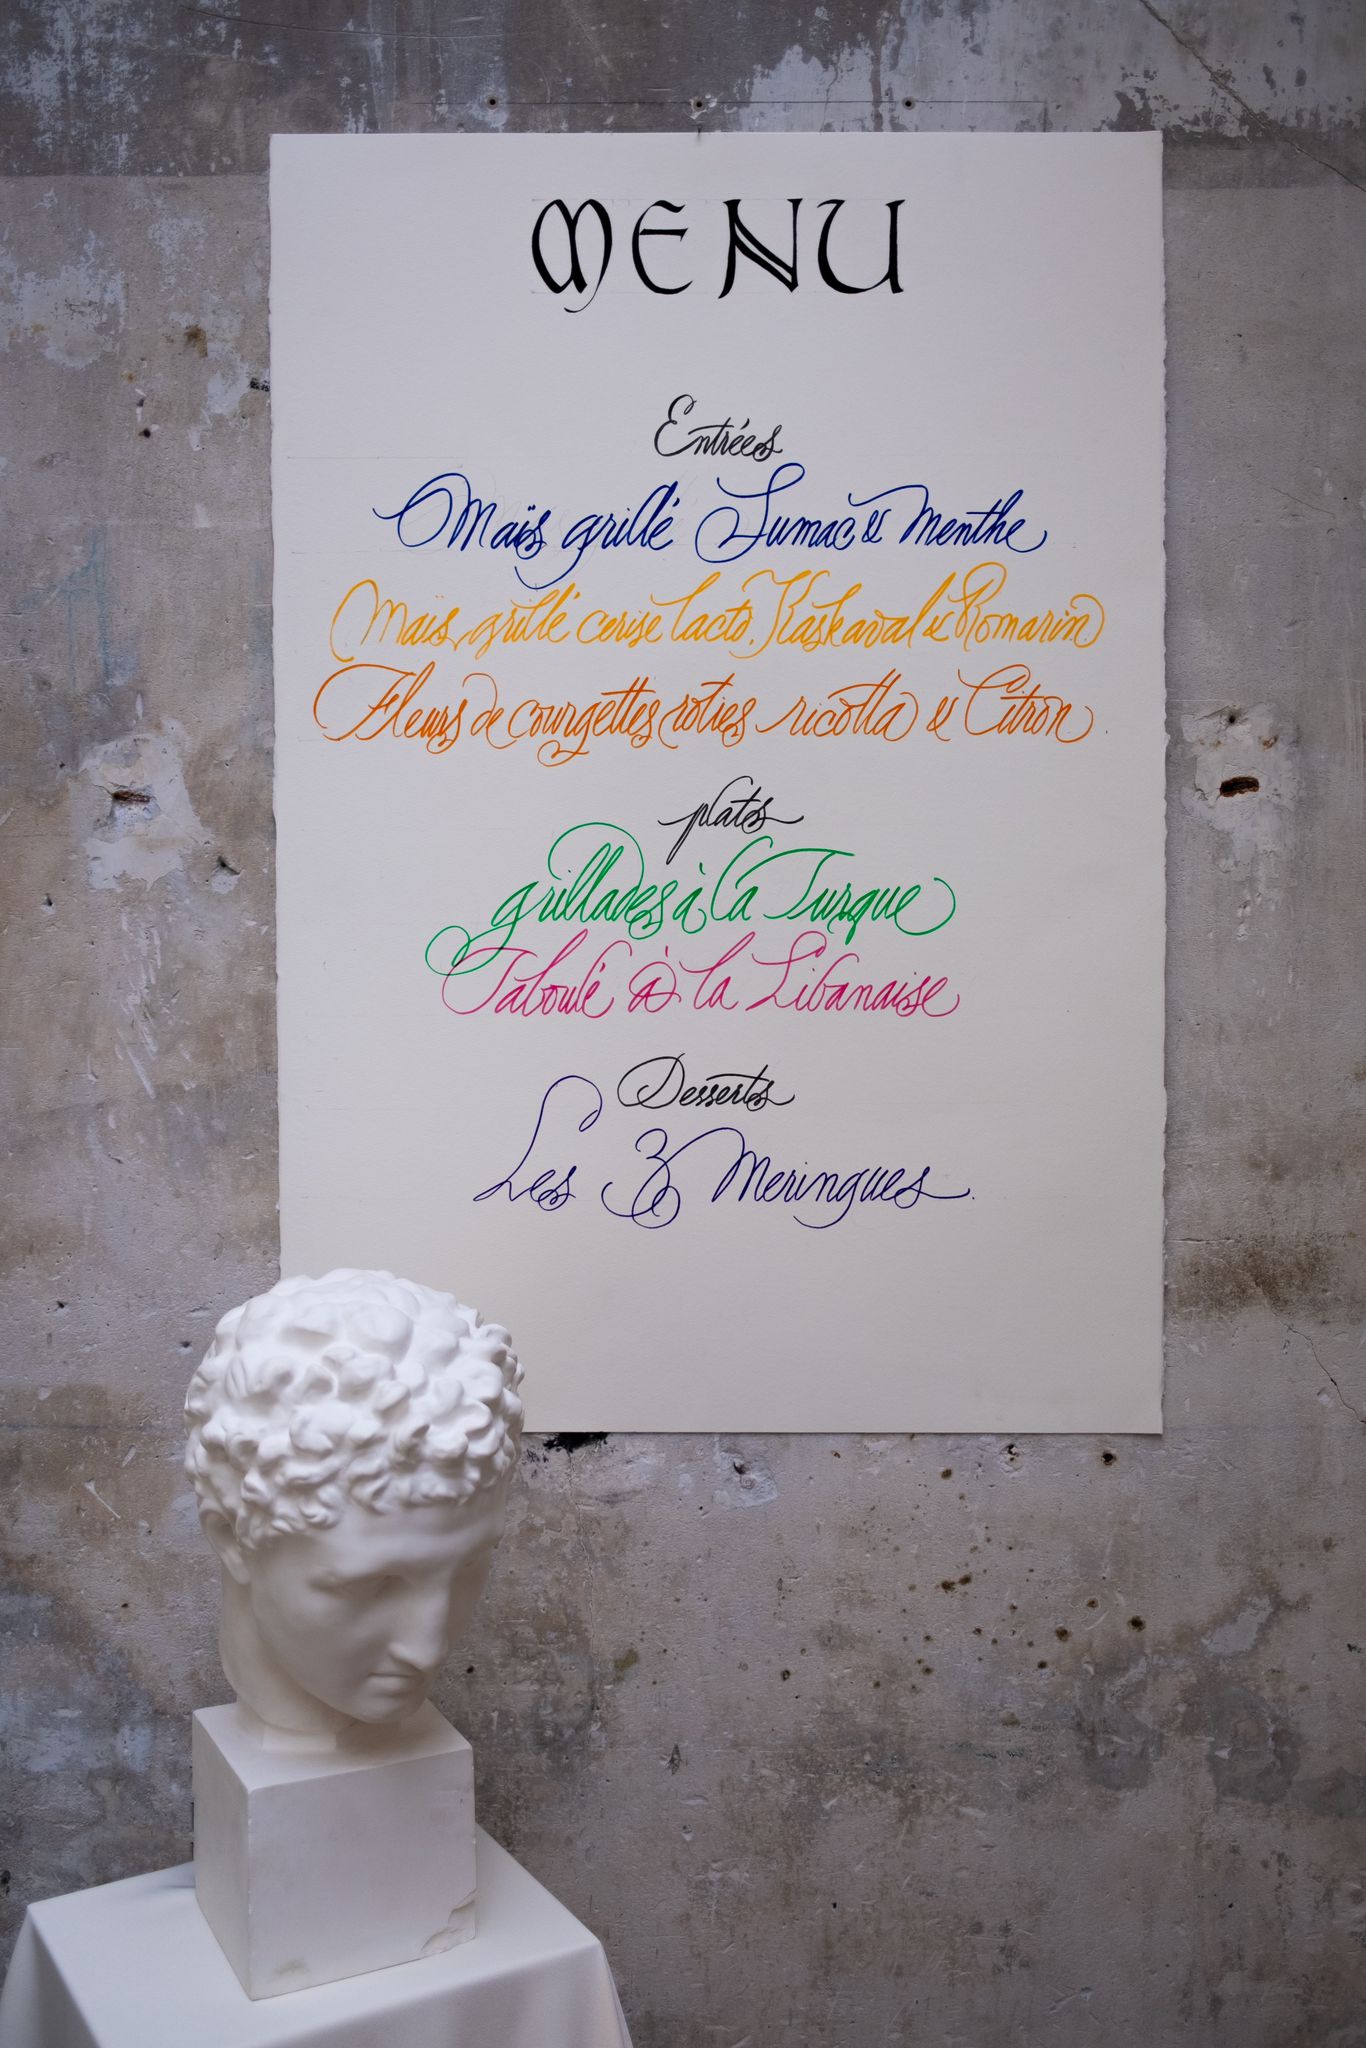 MENU
Entrées
Maïs grillé Sumac & Menthe
Maïs grillé cerise lacto, Kaskaval & Romarin
Fleurs de courgettes roties ricotta & Citron
plats
grillades à la Turque
Taboulé à la Libanaise
Desserts
Les 3 Meringues